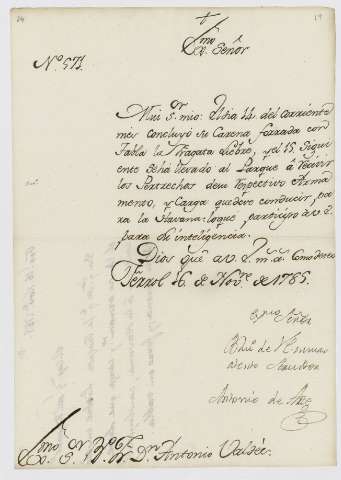 Exmo Señor
No 571.
Mui Sor. mio: El dia 14 del corriente
mes concluyó su Carena forrada con
Tabla la Fragata Liebre, y el 15 Sigui
ente se há llevado al Parque á recivir
los Pertrechos de su respectivo Arma
mento, y Carga que deve conducir, pa
ra la Havana: lo que participo a V. E.
para su inteligencia.
Dios gue a V. E. m. a. Como deseo
Ferrol 16 de Nove. de 1785.
Exmo Señor
Antonio de
Exmo Sor Bo Fr. Dn. Antonio Valdés.